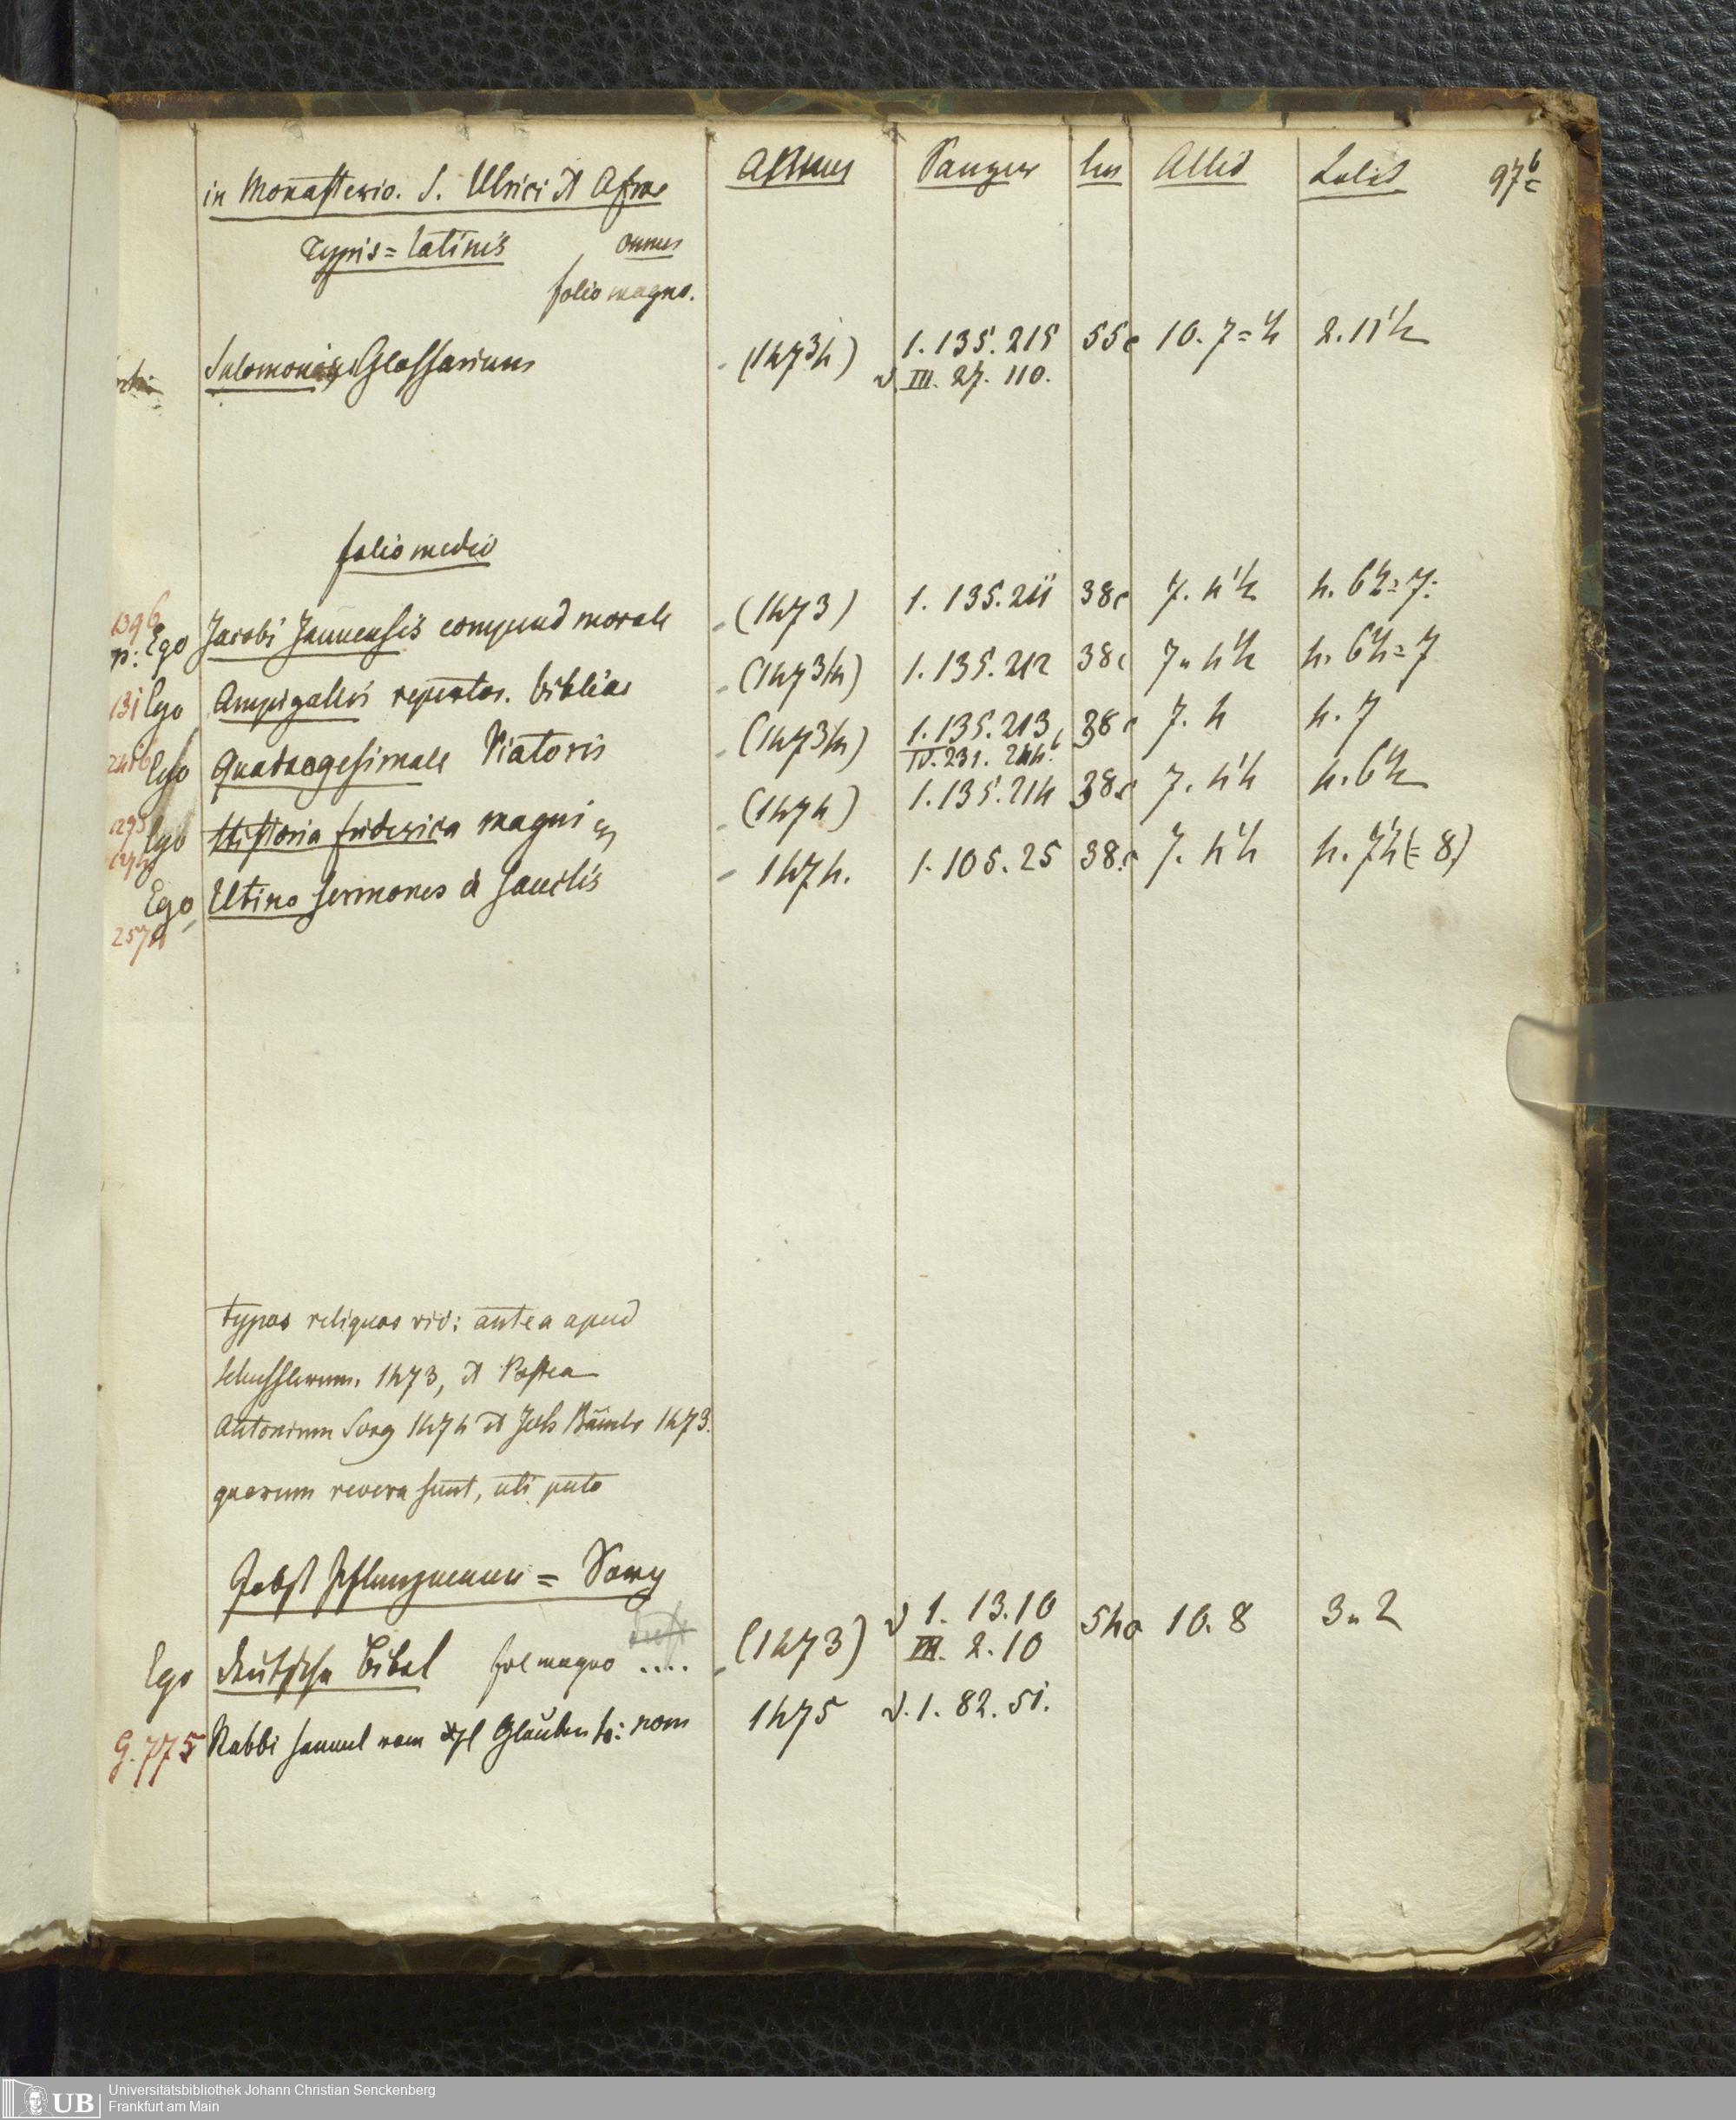 in Monasterio. S. Ulrici et Afrae
Annus Panzer lin Altid Latit 97b
Typis = latinis omnes
folio magno.
Salomonis Glossarium (1473/4) 1. 135. 215 55c 10. 7=½ 2. 11½
v III. 27. 110.
folio medio
1396
n: Ego Jacobi Januensis compend morale (1473) 1. 135. 211 38c 7. 4½ 4. 6½=7.
131 Ego Ampigollis repertor. bibliae (1473/4) 1. 135. 212 38c 7. 4½ 4. 6½=7
2416 Ego Quadragesimale Viatoris (1473/4) 1. 135. 213 38c 7. 4 4. 7
IV. 231. 244b.
1293 Ego Historia friderici magni (1474) 1. 135. 214 38c 7. 4½ 4. 6½
Ego Utino sermones d sanctis 1474. 1. 105. 25 38c 7. 4½ 4. 7½ (=8)
257
typos reliquos vid: antea apud
Schusslerum. 1473, et Postea
Antonium Sorg 1474 et Joh Bämler 1473.
quorum revera sunt, uti puto
Jobst Pflanzmann = Sorg
Ego deutsche Bibel fol magno .... (1473) v 1. 13. 10 54 10. 8 3. 2
III. 2. 10
G. 775 Rabbi Samuel vom Glauben 4: rom 1475 v. 1. 82. 51.
UB Universitätsbibliothek Johann Christian Senckenberg
Frankfurt am Main